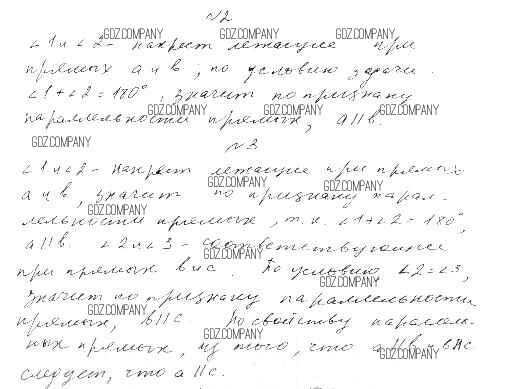 №2
GDZ.COMPANY GDZ.COMPANY GDZ.COMPANY
∠1 и ∠2 - накрест лежащие при
прямых a и b, по условию задачи.
∠1+∠2=180°, значит по признаку
GDZ.COMPANY GDZ.COMPANY GDZ.COMPANY
параллельности прямых, a||b.
GDZ.COMPANY
№3
∠1 и ∠2 - накрест лежащие при прямых
GDZ.COMPANY GDZ.COMPANY
a и b, значит по признаку парал-
GDZ.COMPANY
лельности прямых, т.к. ∠1+∠2=180°,
a||b. ∠2 и ∠3 - соответствующие
GDZ.COMPANY
при прямых b и c. По условию ∠2=∠3,
GDZ.COMPANY
значит по признаку параллельности
GDZ.COMPANY
прямых, b||c. По свойству параллель-
GDZ.COMPANY
ных прямых, из того, что a||b и b||c
GDZ.COMPANY
следует, что a||c.
GDZ.COMPANY